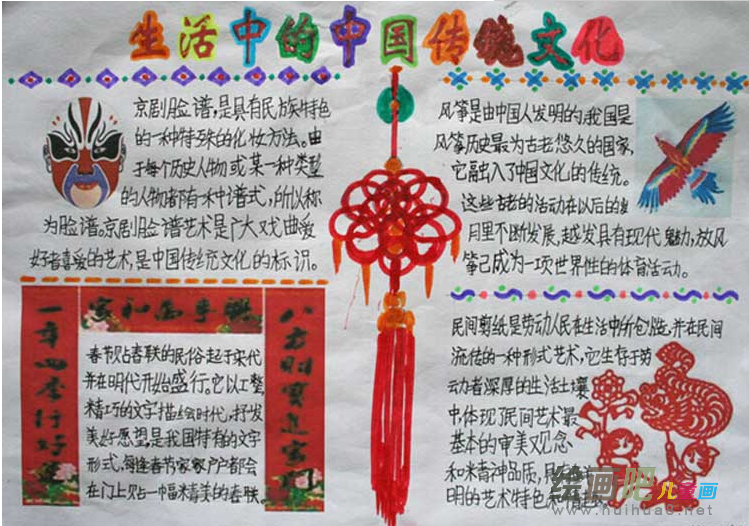 生活中的中国传统文化
京剧脸谱,是具有民族特色
的一种特殊的化妆方法。由
于每个历史人物或某一种类型
的人物都有一种谱式,所以称
为脸谱。京剧脸谱艺术是广大戏曲爱
好者喜爱的艺术,是中国传统文化的标识。
风筝是由中国人发明的,我国是
风筝历史最为古老悠久的国家,
它融出入了中国文化的传统。
这些古老的活动在以后的岁
月里不断发展,越发具有现代魅力,放风
筝已成为一项世界性的体育活动。
家和万事兴
一年四季行好运
八方财宝进家门
春节贴春联的民俗起于宋代
并在明代开始盛行。它以工整
精巧的文字描绘时代,抒发
美好愿望,是我国特有的文字
形式,每逢春节家家户户都会
在门上贴一幅精美的春联。
民间剪纸是劳动人民在生活中所创造,并在民间
流传的一种形式艺术,它生存于劳
动者深厚的生活土壤
中,体现了民间艺术最
基本的审美观念
和精神品质,
明的艺术特色
绘画吧 儿童画
www.huihua8.net